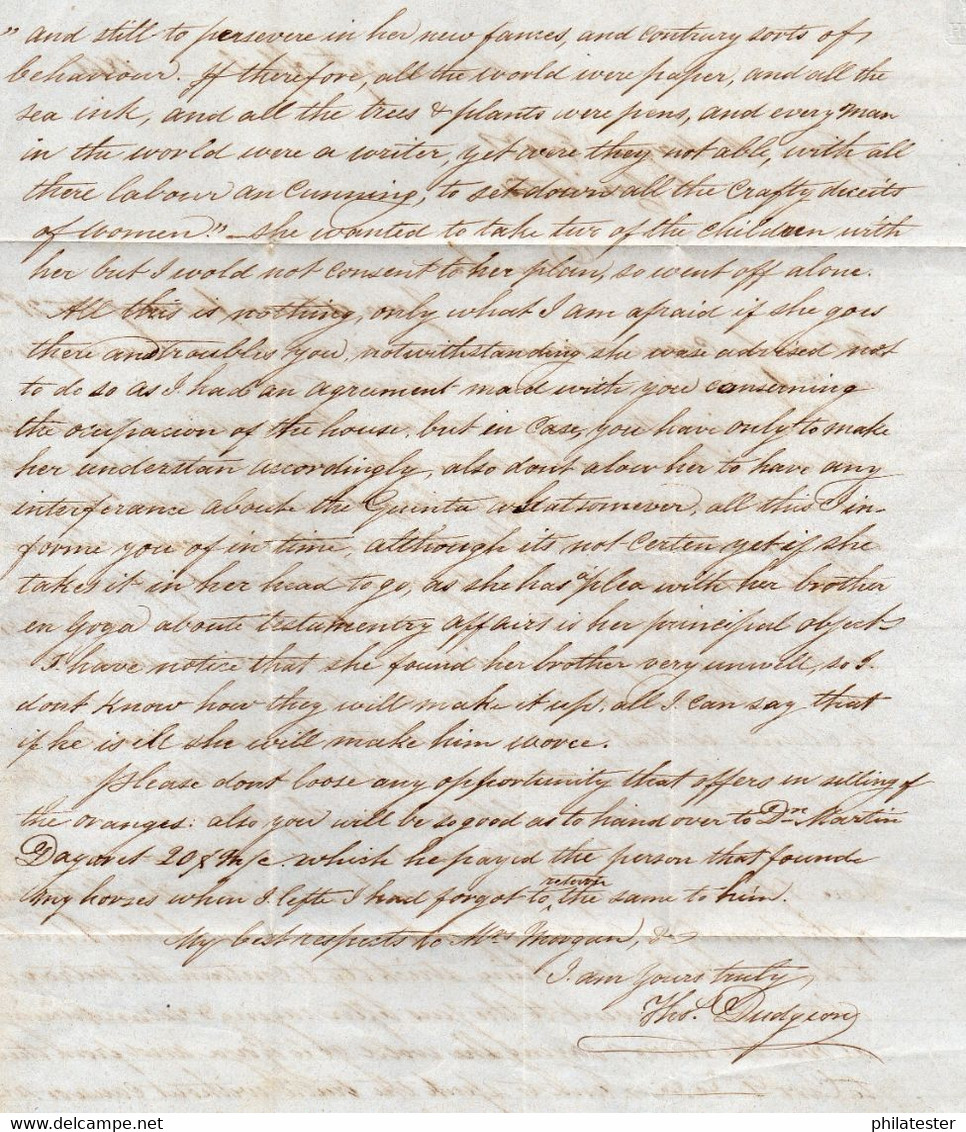 " and still to persevere in her new fances, and contrary sorts of
behaviour. If therefore, all the world were paper, and all the
sea ink, and all the trees & plants were pens, and every man
in the world were a writer, yet were they not able, with all
there labour an Cunning, to set down all the Crafty deceits
of women." – She wanted to take two of the Children with
her but I wold not consent to her plan, so went off alone.
All this is nothing, only what I am afraid if she goes
there and troubles you, notwithstanding she wase advised not
to do so as I had an agrument mad with you conserning
the ocupacion of the house, but in Case, you have only to make
her understan accordingly, also dont alow her to have any
interferance aboute the Quinta whatsomever, all this I in-
forme you of in time, although its not Certen yet if she
takes it in her head to go, as she has a plea with her brother
en Goya about testumentry affairs is her principal object
I have notice that she found her brother very unwell, so I
dont know how they will make it up. all I can say that
if he is ill she will make him worce.
Please dont loose any opportunity that offers in selling of
the oranges: also you will be so good as to hand over to Dn. Martin
20 which he payed the person that founde
my horses when I lefte I had forgot to return the same to him.
My best respects to Mrs Morgan, &
I am yours truly,
Thos. Dudgeon
philatester